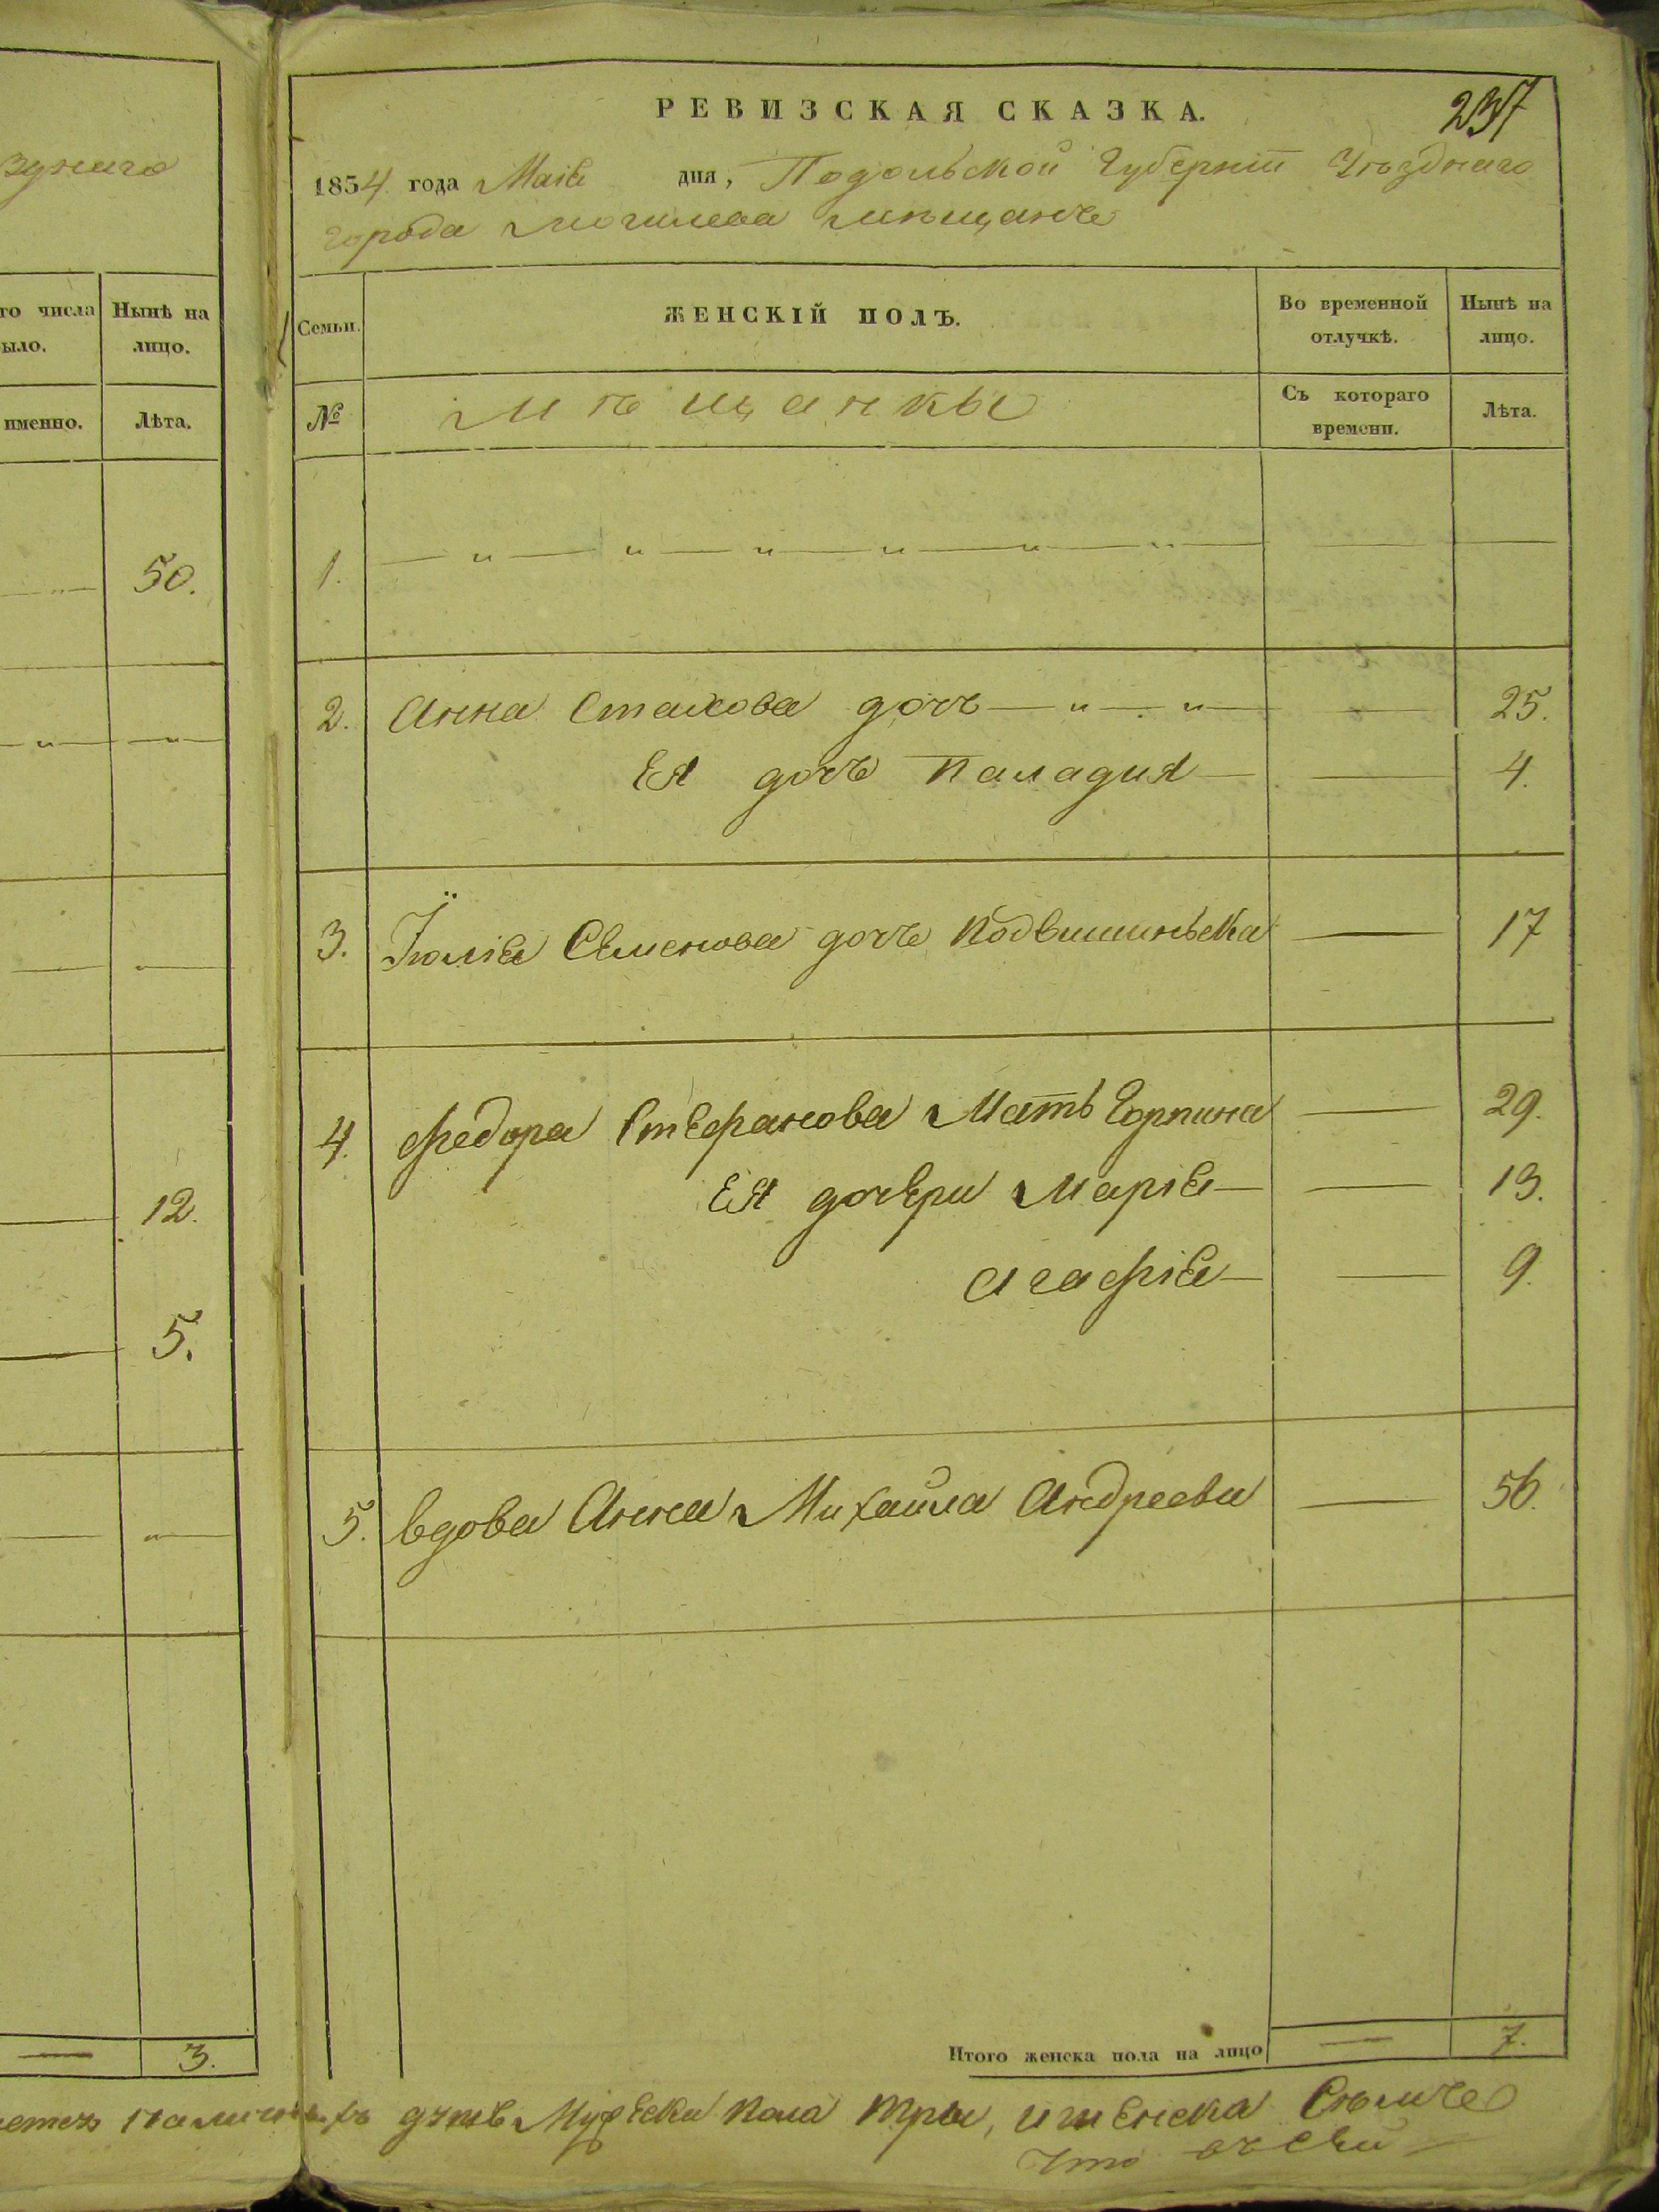 зунаго
го числа
было.
Нынѣ на
лицо.
именно.
Лѣта.
50.
12.
5.
3.
РЕВИЗСКАЯ СКАЗКА.
237
1854 года Маія дня, Подольской Губерніи Уѣзднаго
города Могилева Мѣщанъ
Семьи.
ЖЕНСКІЙ ПОЛЪ.
Во временной
отлучкѣ.
Нынѣ на
лицо.
№
Мѣщанки
Съ котораго
времени.
Лѣта.
1.
2. Анна Стахова дочь 25.
Ея дочь Паладия 4.
3. Юлія Семенова дочь Подвишиньска 17
4. Федора Стефанова Мать Горпина 29.
Ея дочери Марія 13.
Агафія 9.
5. вдова Анна Михайла Андреева 56.
Итого женска пола на лицо 7.
душъ Мужеска пола три, и женска Сѣмъ
Что